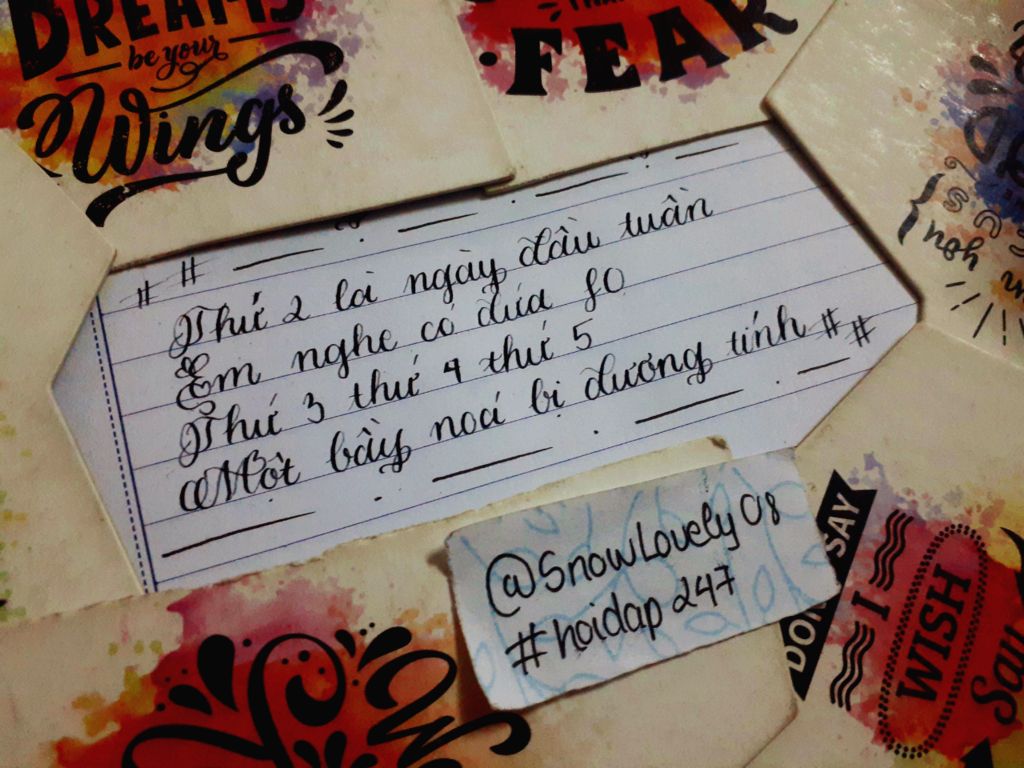 DREAMS
be your
Wings
THAN
FEAR
# #
Thứ 2 là ngày đầu tuần
Em nghe có đứa f0
Thứ 3 thứ 4 thứ 5
Một bầy noá bị dương tính # #
@SnowLovely08
#hoidap247
SAY
I
WISH